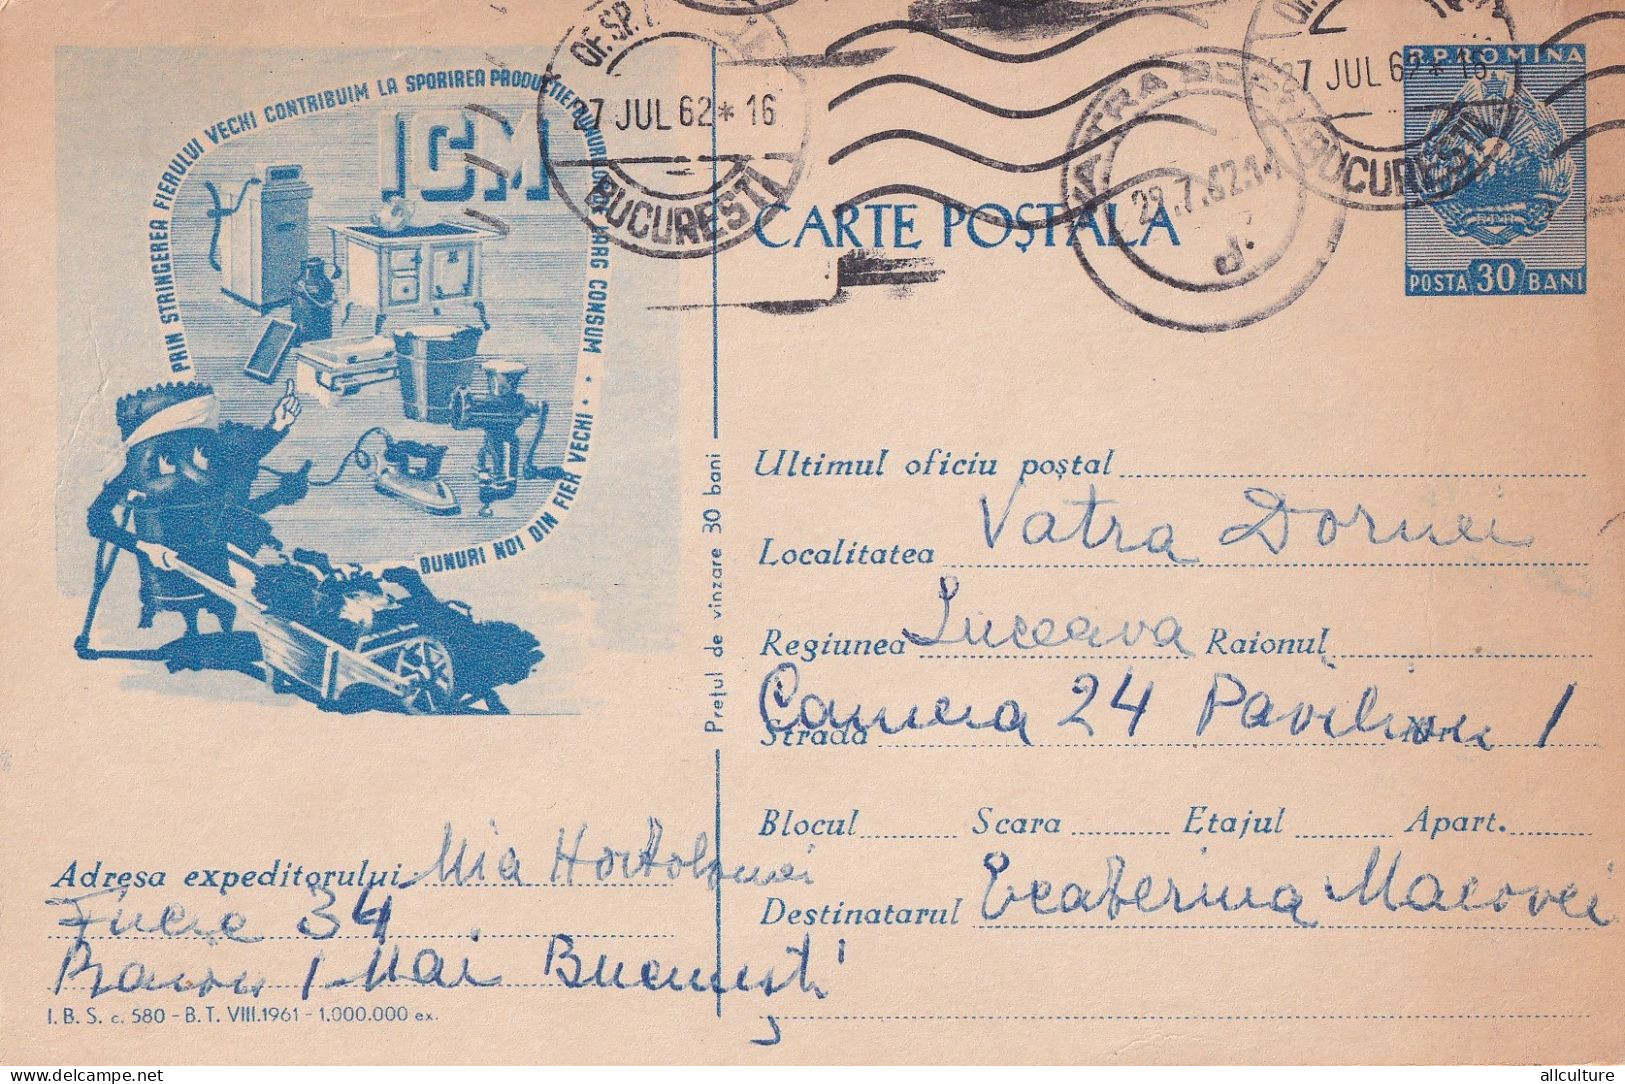 PRIN STRINGEREA FIERULUI VECHI CONTRIBUIM LA SPORIREA PRODUCTIEI BUNURILOR DE LARG CONSUM * BUNURI NOI DIN FIER VECHI *
ICM
OF. SP.
27 JUL 62 * 16
BUCURESTI
VATRA DORNEI
28.7.62.14
27 JUL 62 * 16
BUCURESTI
R.P. ROMINA
POSTA 30 BANI
CARTE POȘTALA
Prețul de vinzare 30 bani
Ultimul oficiu poștal
Localitatea Vatra Dornei
Regiunea Suceava Raionul
Camera 24 Pavilion 1
Strada Nr.
Blocul Scara Etajul Apart.
Destinatarul Ecaterina Macovei
Adresa expeditorului: Mia
34
Raion 1 Mai București
I. B. S. c. 580 - B. T. VIII.1961 - 1.000.000 ex.
delcampe.net
allculture